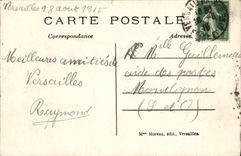 Versailles 18 aout 1915
CARTE POSTALE
Correspondance
Adresse
Meilleures amitiés de
Versailles
Raymond
Mlle Guillemeau
des postes
Montlignon
(S-et-O)
Mme Moreau, édit., Versailles.